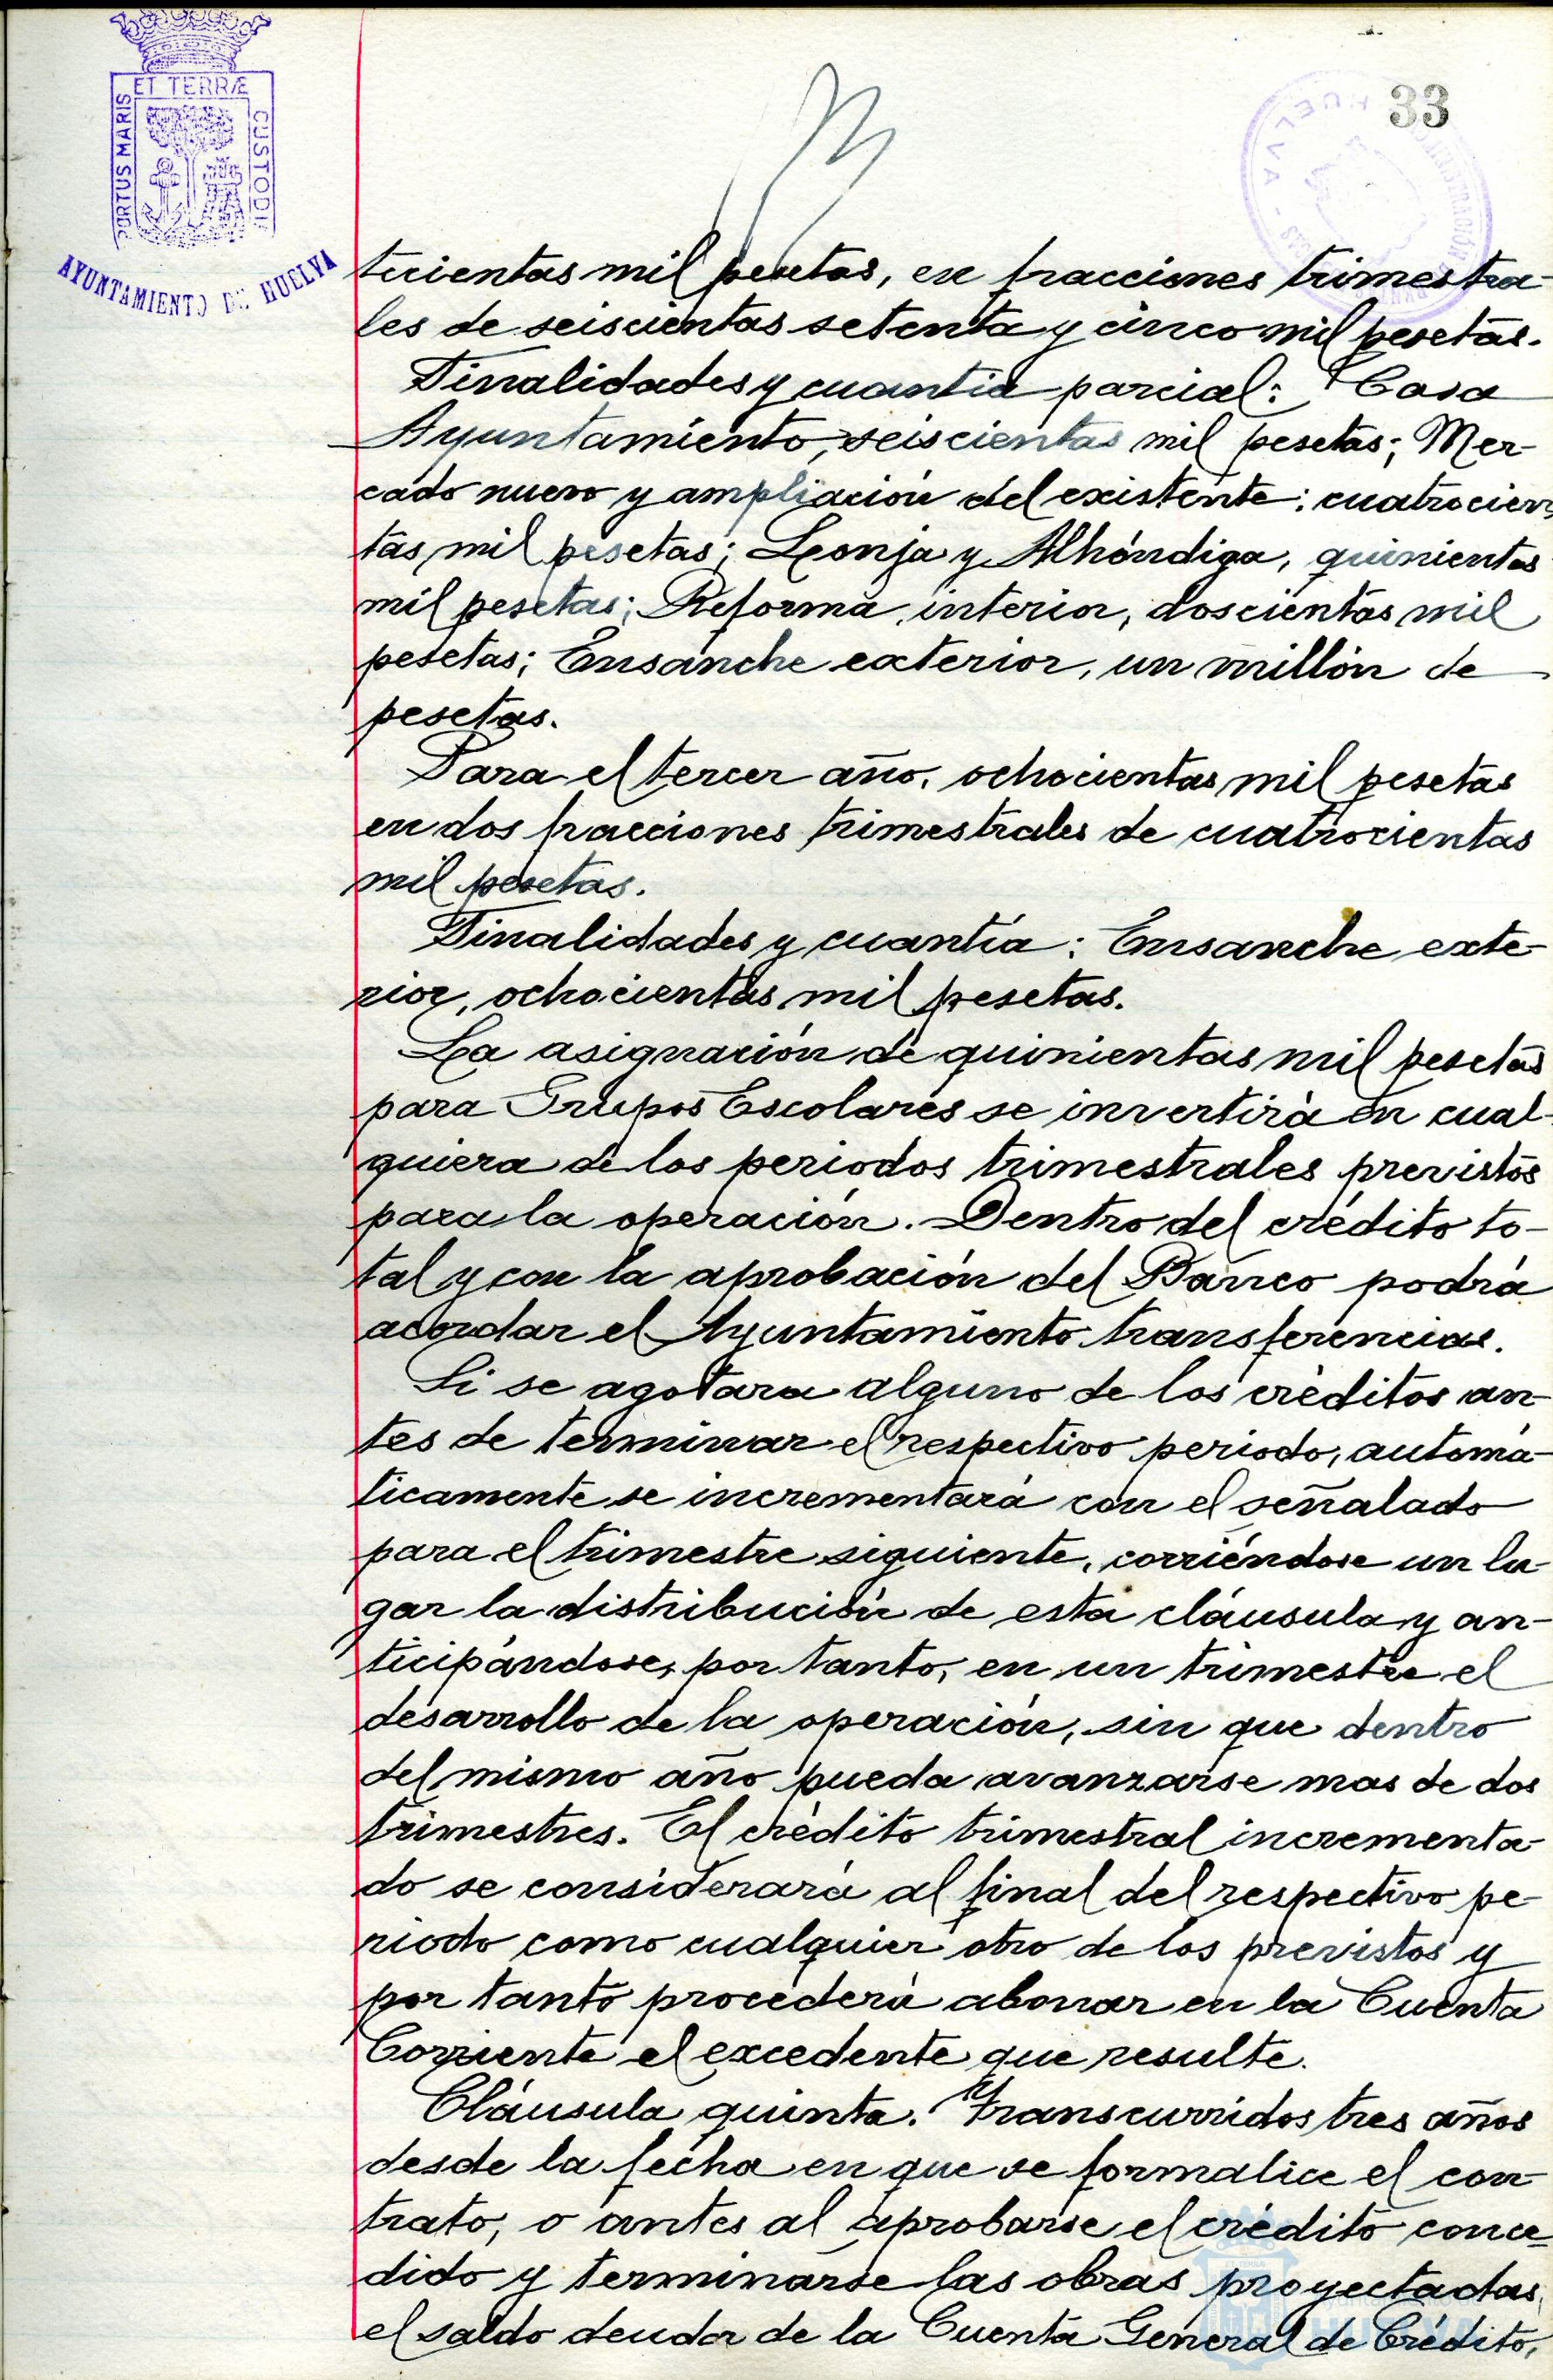 33
ET TERRÆ
PORTUS MARIS
CUSTODI
AYUNTAMIENTO DE HUELVA
HUELVA
tecientas mil pesetas, en fracciones trimestra-
les de seiscientas setenta y cinco mil pesetas.
Finalidades y cuantía parcial: Casa
Ayuntamiento, seiscientas mil pesetas; Mer-
cado nuevo y ampliación del existente: cuatrocien
tas mil pesetas; Lonja y Alhóndiga, quinientas
mil pesetas; Reforma interior, doscientas mil
pesetas; Ensanche exterior, un millón de
pesetas.
Para el tercer año, ochocientas mil pesetas
en dos fracciones trimestrales de cuatrocientas
mil pesetas.
Finalidades y cuantía: Ensanche exte-
rior, ochocientas mil pesetas.
La asignación de quinientas mil pesetas
para Grupos Escolares se invertirá en cual-
quiera de los periodos trimestrales previstos
para la operación. Dentro del crédito to-
tal y con la aprobación del Banco podrá
acordar el Ayuntamiento transferencias.
Si se agotara alguno de los créditos an-
tes de terminar el respectivo periodo, automá-
ticamente se incrementará con el señalado
para el trimestre siguiente, corriéndose un lu-
gar la distribución de esta cláusula y an-
ticipándose, por tanto, en un trimestre el
desarrollo de la operación, sin que dentro
del mismo año pueda avanzarse mas de dos
trimestres. El crédito trimestral incrementa-
do se considerará al final del respectivo pe-
riodo como cualquier otro de los previstos y
por tanto procederá abonar en la Cuenta
Corriente el excedente que resulte.
Cláusula quinta. Transcurridos tres años
desde la fecha en que se formalice el con-
trato, o antes al aprobarse el crédito conce-
dido y terminarse las obras proyectadas,
el saldo deudor de la Cuenta General de Crédito,